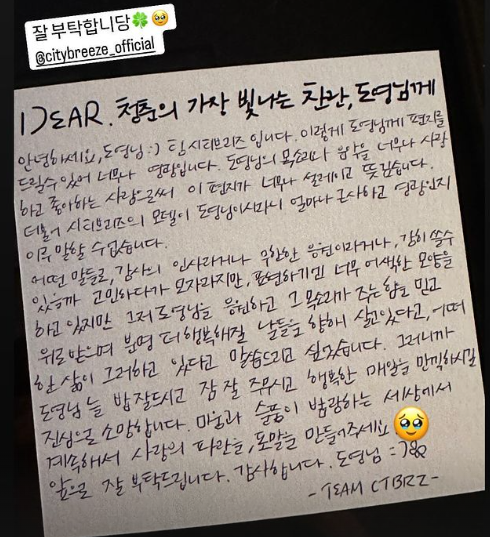 잘 부탁합니당🍀🥹
@citybreeze_official
DEAR. 청춘의 가장 빛나는 찬란, 도영님께
안녕하세요, 도영님 :) 팀 시티브리즈입니다. 이렇게 도영님께 편지를
드릴 수 있어 너무나 영광입니다. 도영님의 목소리와 음악을 너무나 사랑
하고 좋아하는 사람으로써 이 편지가 너무나 설레이고 뜻깊습니다.
더불어 시티브리즈의 모델이 도영님이시라니 얼마나 근사하고 영광인지
이루 말할 수 없습니다.
어떤 말들로, 감사의 인사라거나 무한한 응원이라거나, 감히 쓸 수
있을까 고민하다가 모자라지만, 표현하기엔 너무 어색한 모양을
하고 있지만 그저 도영님을 응원하고 그 목소리가 주는 힘을 믿고
위로받으며 분명 더 행복해질 날들을 향해 살고 있다고, 어떠
한 삶이 그러하고 있다고 말씀드리고 싶었습니다. 그러니까
도영님 늘 밥 잘 드시고 잠 잘 주무시고 행복한 매일을 만끽하시길
진심으로 소망합니다. 마음과 슬픔이 범람하는 세상에서
계속해서 사랑의 파란을, 포말을 만들어주세요 🥹
앞으로 잘 부탁드립니다. 감사합니다. 도영님 :)
- TEAM CTBRZ -